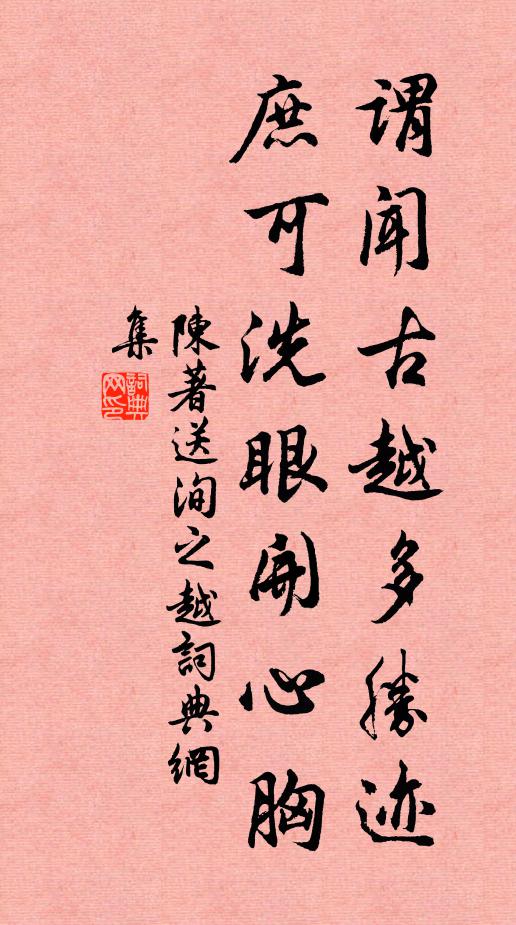 谓闻古越多胜迹
庶可洗眼开心胸
陳著送洵之越詞典網
集
詞典
网印